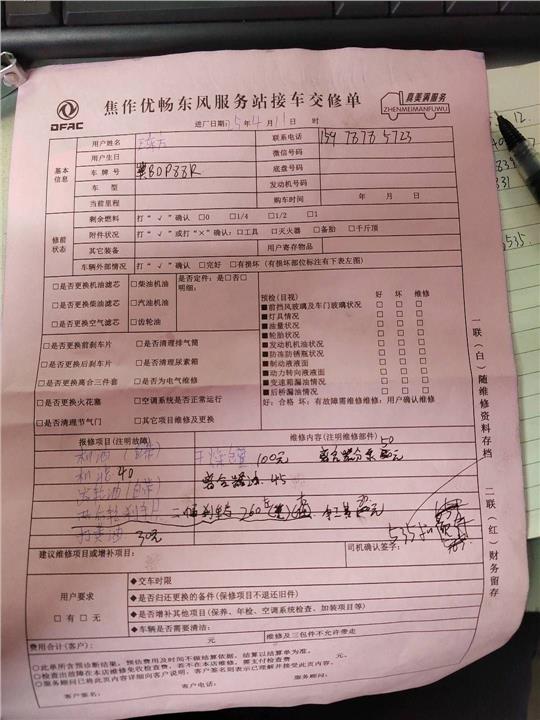 DFAC
焦作优畅东风服务站接车交修单
真美满服务
ZHENMEIMANFUWU
进厂日期: 5年4月11日 时
基本信息
用户姓名
联系电话
用户生日
微信号码
车牌号 冀BDP88R
底盘号码
车型
发动机号码
当前里程
购车时间 年 月 日
修前状态
剩余燃料 打“√”确认 □0 □1/4 □1/2 □1
附件状况 打“√”或打“×”确认: □工具 □灭火器 □备胎 □千斤顶
其它装备
用户寄存物品
车辆外部情况 打“√”确认 □完好 □有损坏(有损坏部位标注有下表左图)
□是否更换机油滤芯 □柴油机油
□是否更换柴油滤芯 □汽油机油
□是否更换空气滤芯 □齿轮油
是否定件: 是□否□
明细:
□是否更换前刹车片 □是否清理排气筒
□是否更换后刹车片 □是否清理尿素箱
□是否更换离合三件套 □是否为电气维修
□是否更换火花塞 □空调系统是否正常运行
□是否清理节气门 □其它项目维修及更换
预检(目视) 好 坏 维修
■前挡风玻璃及车门玻璃状况 □ □ □
■灯具情况 □ □ □
■油量状况 □ □ □
■轮胎状况 □ □ □
■发动机机油状况 □ □ □
■防冻防锈瓶状况 □ □ □
■制动液液面 □ □ □
■动力转向液液面 □ □ □
■变速箱漏油情况 □ □ □
■后桥漏油情况 □ □ □
好: 合格 坏: 有故障需维修维修: 用户确认维修
报修项目(注明故障)
维修内容(注明维修部件)
机油(自带)
100元
50
机滤 40
离合器油 45
齿轮油(自带)
打黄油 30元
535
建议维修项目或增补项目:
司机确认签字:
用户要求
□有 □无
◆交车时限
◆是否归还更换的备件(保修项目不退还旧件)
◆是否增补其他项目(保养、年检、空调系统检查、加装项目等)
◆车辆是否需要清洁:
费用合计(客户): 元
维修及三包件不允许带走
○此单所含预诊断结果, 预估费用及时间不做结算依据, 结算以结算单为准。
○检查出故障在本店维修免收检查费, 若不在本店维修, 需支付检查费 元。
○服务顾问已将此页内容详细向客户说明, 客户签名则表示已理解并接受此页内容。
客户签名: 客户电话: 服务顾问:
一联(白)随维修资料存档
二联(红)财务留存
12.
535.